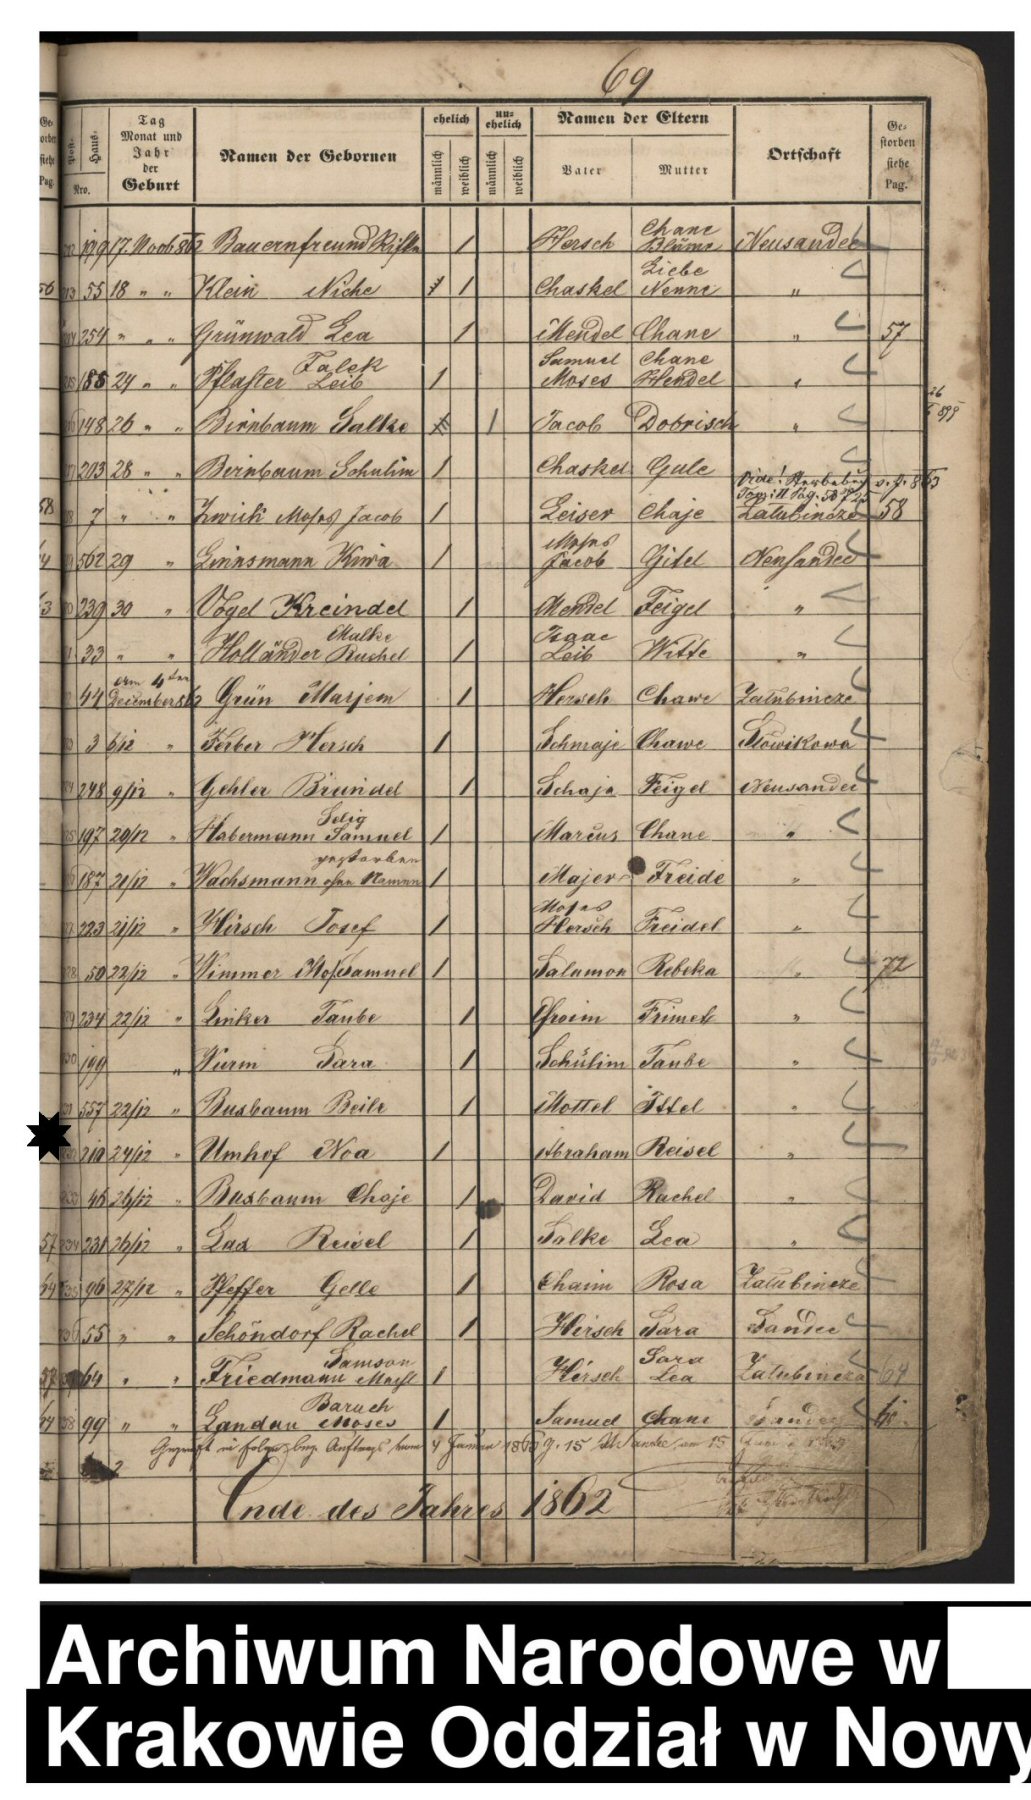 69
Ge-
storben
siehe
Pag.
Post-
Haus-
Nro.
Tag
Monat und
Jahr
der
Geburt
Namen der Gebornen
ehelich
männlich
weiblich
un-
ehelich
männlich
weiblich
Namen der Eltern
Vater
Mutter
Ortschaft
Ge-
storben
siehe
Pag.
17. Bauernfreund / Hersch Chane Blume Neusandec
56 55 18 " " Klein Niche / Chaskel Liebe Nenne "
254 " " " Grünwald Lea / Mendel Chane " 57
188 24 " " Pflaster Falek Leib / Samuel Moses Chane Hendel "
148 26 " " Birnbaum Salke / Jacob Dobrisch "
203 28 " " Birnbaum Schulim / Chaskel Gule "
58 7 " " " Zwick Moses Jacob / Leiser Chaje Zalubincze 58
562 29 " Linnsmann Kiwa / Moses Jacob Gitel Neusandec
239 30 " Vogel Kreindel / Mendel Feigel "
33 " " Holländer Malke Ruchel / Isaac Leib Witte "
44 am 4ten December 862 Grün Marjem / Hersch Chawe Zalubincze
3 6/12 " Ferber Hersch / Schmaje Chawe Slowikowa
248 9/12 " Gehler Breindel / Schaja Feigel Neusandec
197 20/12 " Habermann Selig Samuel / Marcus Chane "
187 21/12 " Wachsmann gestorben ohne Namen / Majer Freide "
223 21/12 " Hirsch Josef / Moses Hersch Freidel "
50 22/12 " Wimmer Mos. Samuel / Salamon Rebeka " 72
234 22/12 " Linker Taube / Efroim Frimet "
199 " Wurm Sara / Schulim Taube "
557 22/12 " Buxbaum Beile / Mottel Ittel "
210 24/12 " Umhof Noa / Abraham Reisel "
46 26/12 " Buxbaum Chaje / David Rachel "
57 231 26/12 " Lax Reisel / Salke Lea "
96 27/12 " Pfeffer Gelle / Chaim Rosa Zalubincze
55 " " Schöndorf Rachel / Hirsch Sara Sandec
57 64 " " Friedmann Samson / Hirsch Sara Lea Zalubincze 64
99 " " Landau Baruch Moses / Samuel Chane Sandec
Ende des Jahres 1862
Archiwum Narodowe w
Krakowie Oddział w Nowy